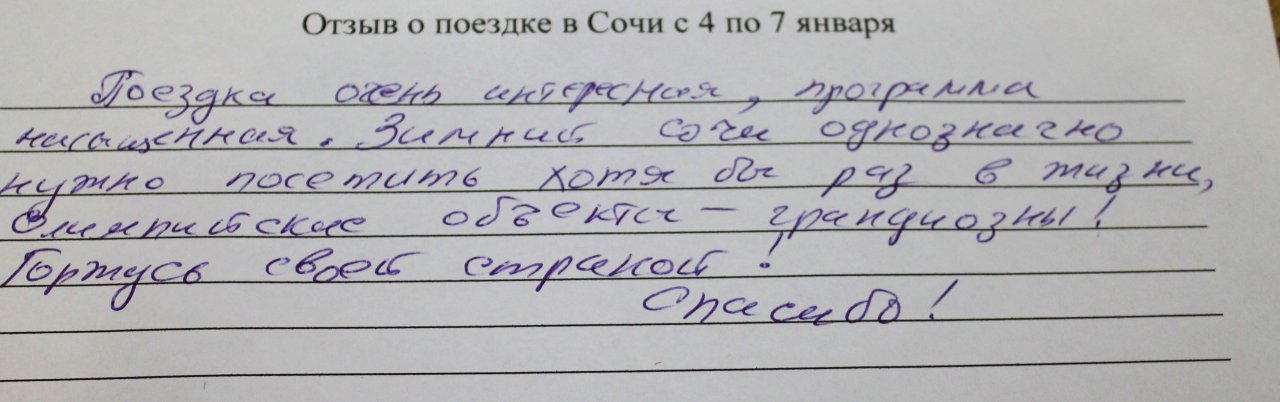 Отзыв о поездке в Сочи с 4 по 7 января
Поездка очень интересная, программа
насыщенная. Зимний Сочи однозначно
нужно посетить хотя бы раз в жизни,
Олимпийские объекты – грандиозны!
Горжусь своей страной!
Спасибо!